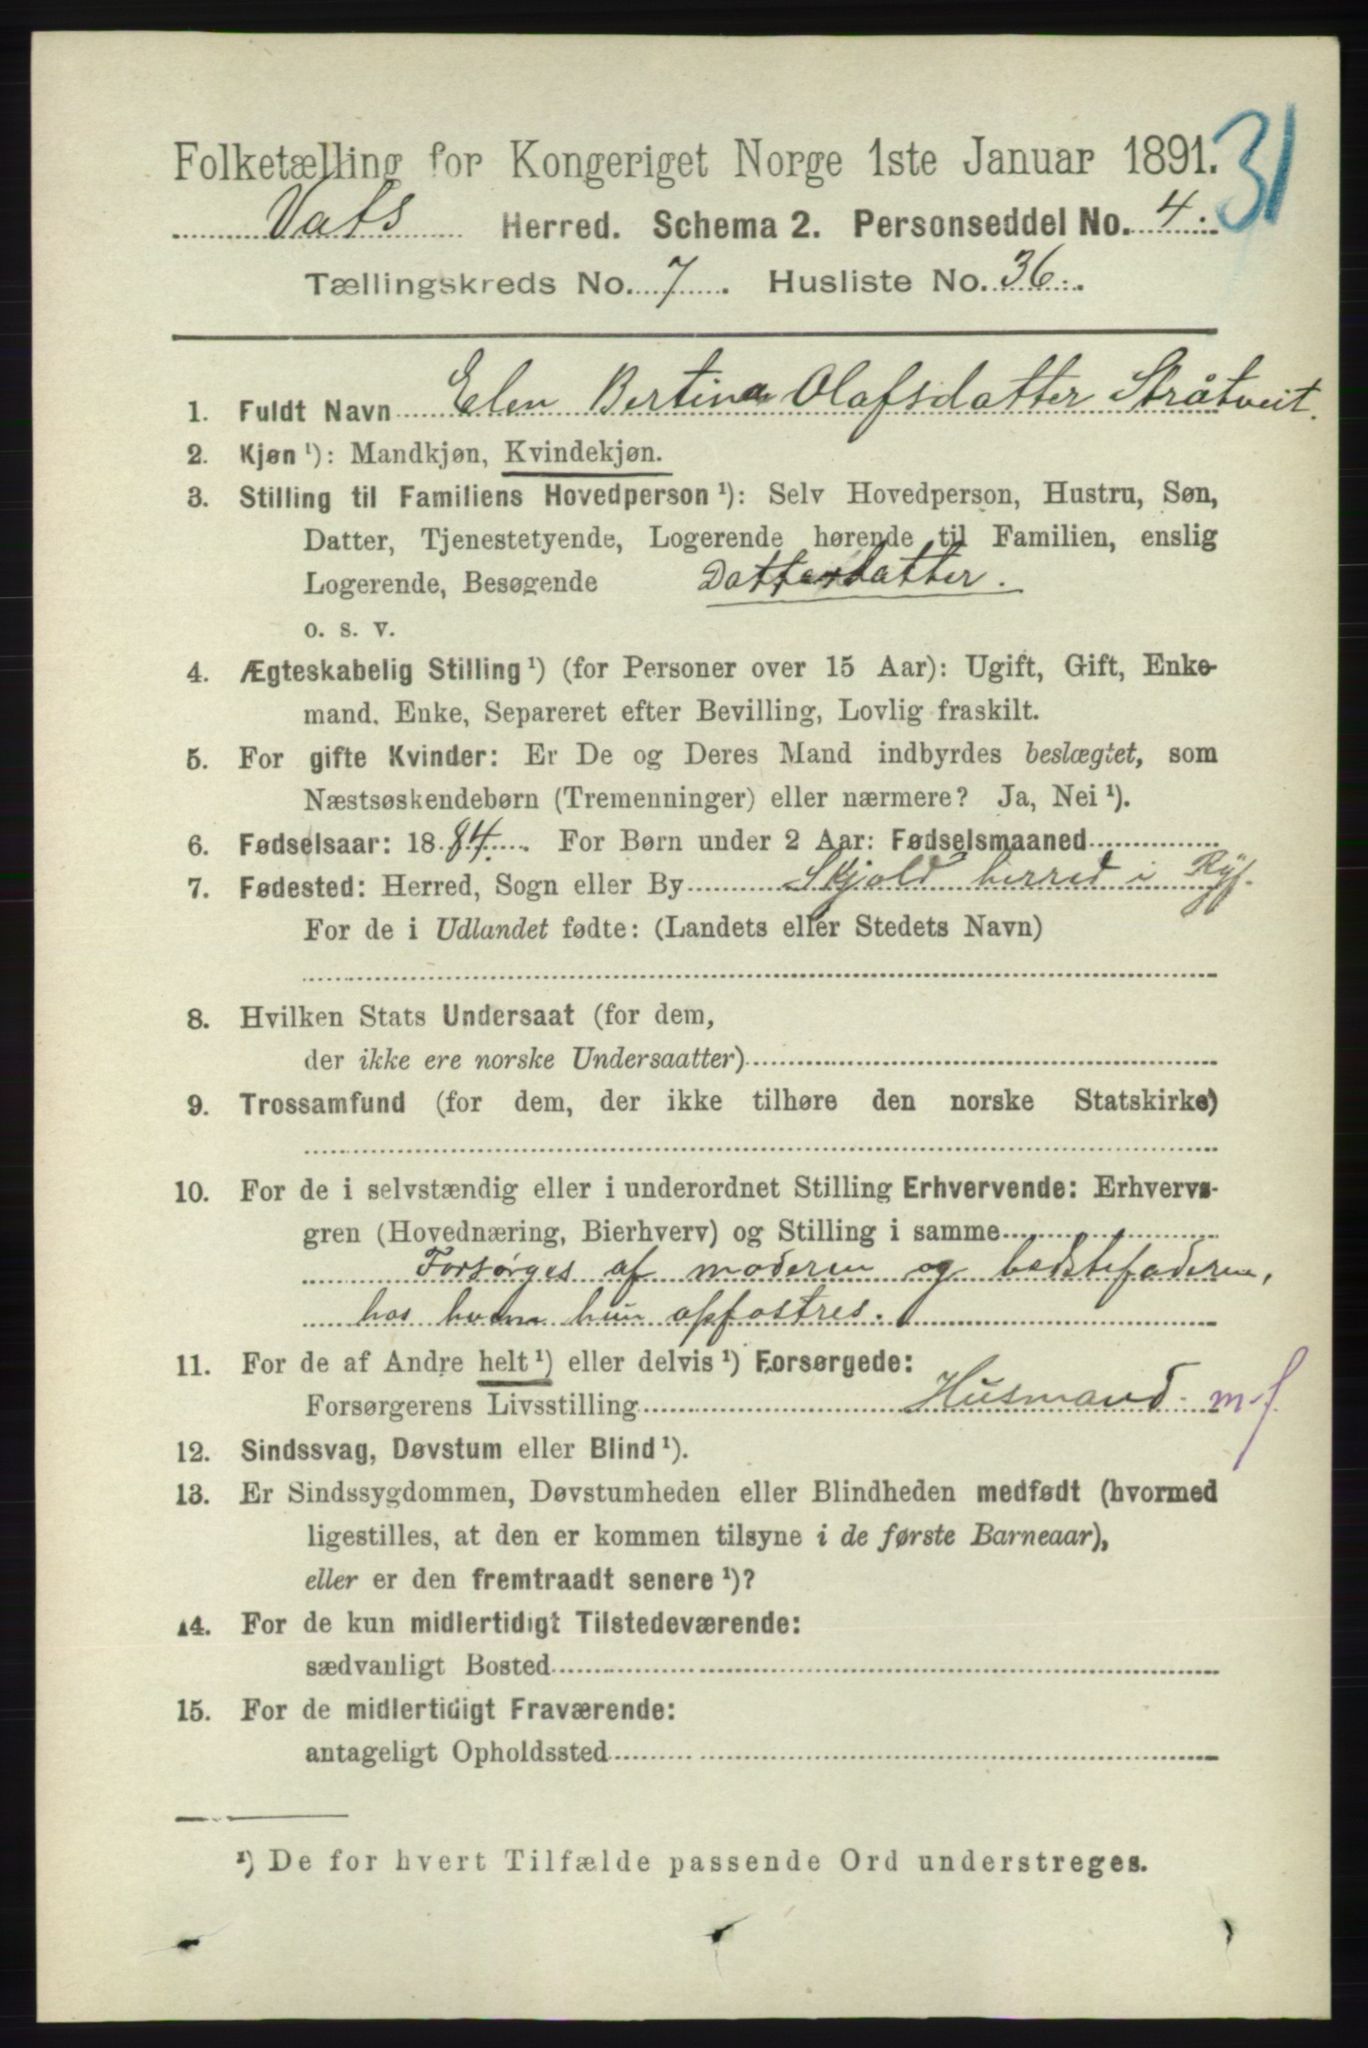 Folketælling for Kongeriget Norge 1ste Januar 1891.
31
Vats Herred. Schema 2. Personseddel No. 4.
Tællingskreds No. 7. Husliste No. 36.
1. Fuldt Navn Elen Bertina Olafsdatter Stråtveit.
2. Kjøn ¹): Mandkjøn, Kvindekjøn.
3. Stilling til Familiens Hovedperson ¹): Selv Hovedperson, Hustru, Søn,
Datter, Tjenestetyende, Logerende hørende til Familien, enslig
Logerende, Besøgende Datterdatter.
o. s. v.
4. Ægteskabelig Stilling ¹) (for Personer over 15 Aar): Ugift, Gift, Enke-
mand, Enke, Separeret efter Bevilling, Lovlig fraskilt.
5. For gifte Kvinder: Er De og Deres Mand indbyrdes beslægtet, som
Næstsøskendebørn (Tremenninger) eller nærmere? Ja, Nei ¹).
6. Fødselsaar: 1884. For Børn under 2 Aar: Fødselsmaaned
7. Fødested: Herred, Sogn eller By Skjold herred i Ryf.
For de i Udlandet fødte: (Landets eller Stedets Navn)
8. Hvilken Stats Undersaat (for dem,
der ikke ere norske Undersaatter)
9. Trossamfund (for dem, der ikke tilhøre den norske Statskirke)
10. For de i selvstændig eller i underordnet Stilling Erhvervende: Erhvervs-
gren (Hovednæring, Bierhverv) og Stilling i samme
Forsørges af moderen og bedstefaderen,
hos hvem hun opfostres.
11. For de af Andre helt ¹) eller delvis ¹) Forsørgede:
Forsørgerens Livsstilling Husmand m.f
12. Sindssvag, Døvstum eller Blind ¹).
13. Er Sindssygdommen, Døvstumheden eller Blindheden medfødt (hvormed
ligestilles, at den er kommen tilsyne i de første Barneaar),
eller er den fremtraadt senere ¹)?
14. For de kun midlertidigt Tilstedeværende:
sædvanligt Bosted
15. For de midlertidigt Fraværende:
antageligt Opholdssted
¹) De for hvert Tilfælde passende Ord understreges.